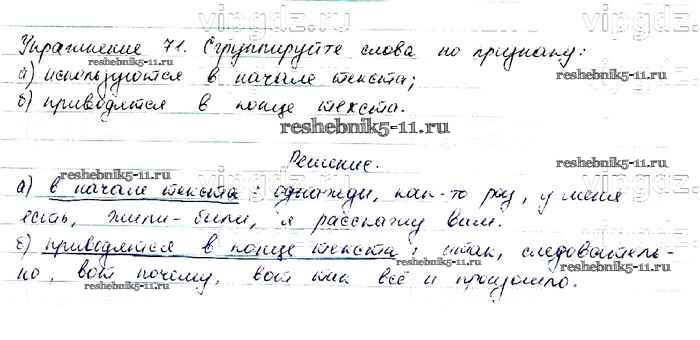 vipgdz.ru vipgdz.
Упражнение 71. Сгруппируйте слова по признаку:
reshebnik5-11.ru
а) используются в начале текста;
reshebnik5-11.ru reshebnik5-11.ru
б) приводятся в конце текста.
reshebnik5-11.ru
Решение.
reshebnik5-11.ru reshebnik5-11.ru
vipgdz.ru vipgdz.
а) в начале текста: однажды, как-то раз, у меня
есть, жили-были, я расскажу вам.
reshebnik5-11.ru
б) приводятся в конце текста: итак, следователь-
reshebnik5-11.ru
но, вот почему, вот так всё и произошло.
reshebnik5-11.ru